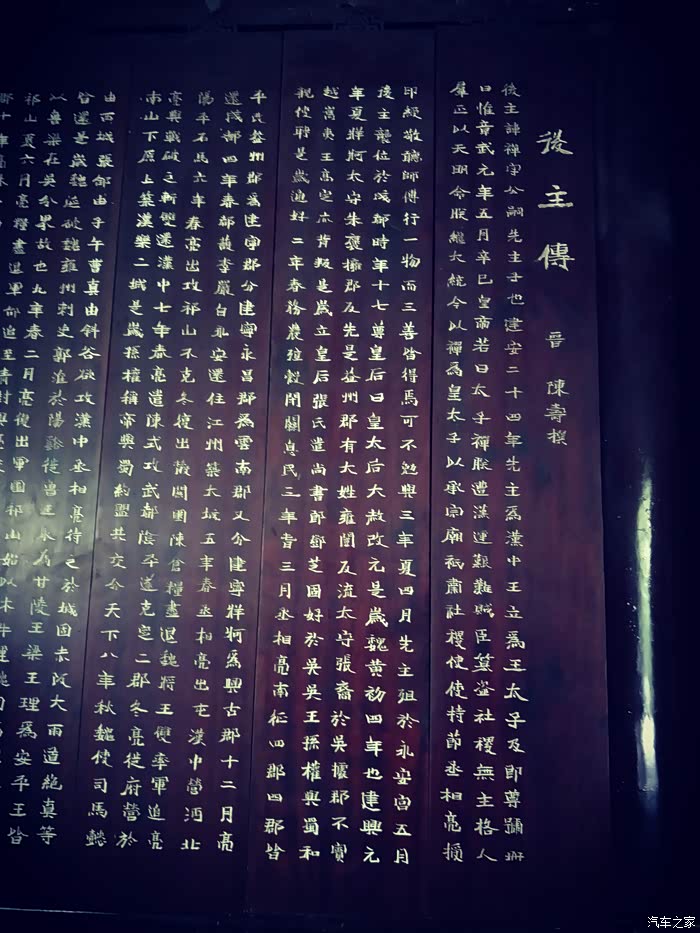 後主傳
晉 陳壽撰
後主諱禪字公嗣先主子也建安二十四年先主為漢中王立為王太子及即尊號冊
曰惟章武元年五月辛巳皇帝若曰太子禪朕遭漢運艱難賊臣篡盜社稷無主格人
羣正以天明命朕繼大統今以禪為皇太子以承宗廟祇肅社稷使使持節丞相亮授
印綬敬聽師傅行一物而三善皆得焉可不勉與三年夏四月先主殂於永安宮五月
後主襲位於成都時年十七尊皇后曰皇太后大赦改元是歲魏黃初四年也建興元
年夏牂牁太守朱褒擁郡反先是益州郡有大姓雍闓反流太守張裔於吳據郡不賓
越嶲夷王高定亦背叛是歲立皇后張氏遣尚書郎鄧芝固好於吳吳王孫權與蜀和
親使聘是歲通好二年春務農殖穀閉關息民三年春三月丞相亮南征四郡四郡皆
平改益州郡為建寧郡分建寧永昌郡為雲南郡又分建寧牂牁為興古郡十二月亮
還成都四年春都護李嚴自永安還住江州築大城五年春丞相亮出屯漢中營沔北
陽平石馬六年春亮出攻祁山不克冬復出散關圍陳倉糧盡退魏將王雙率軍追亮
亮與戰破之斬雙還漢中七年春亮遣陳式攻武都陰平遂克定二郡冬亮徙府營於
南山下原上築漢樂二城是歲孫權稱帝與蜀約盟共交分天下八年秋魏使司馬懿
由西城張郃由子午曹真由斜谷欲攻漢中丞相亮待之於城固赤阪大雨道絕真等
皆還是歲魏延破魏雍州刺史郭淮於陽谿徙魯王永為甘陵王梁王理為安平王皆
以魯梁在吳分界故也九年春二月亮復出軍圍祁山始以木牛運
祁山夏六月亮糧盡退軍郃追至青封與
郡十年亮休